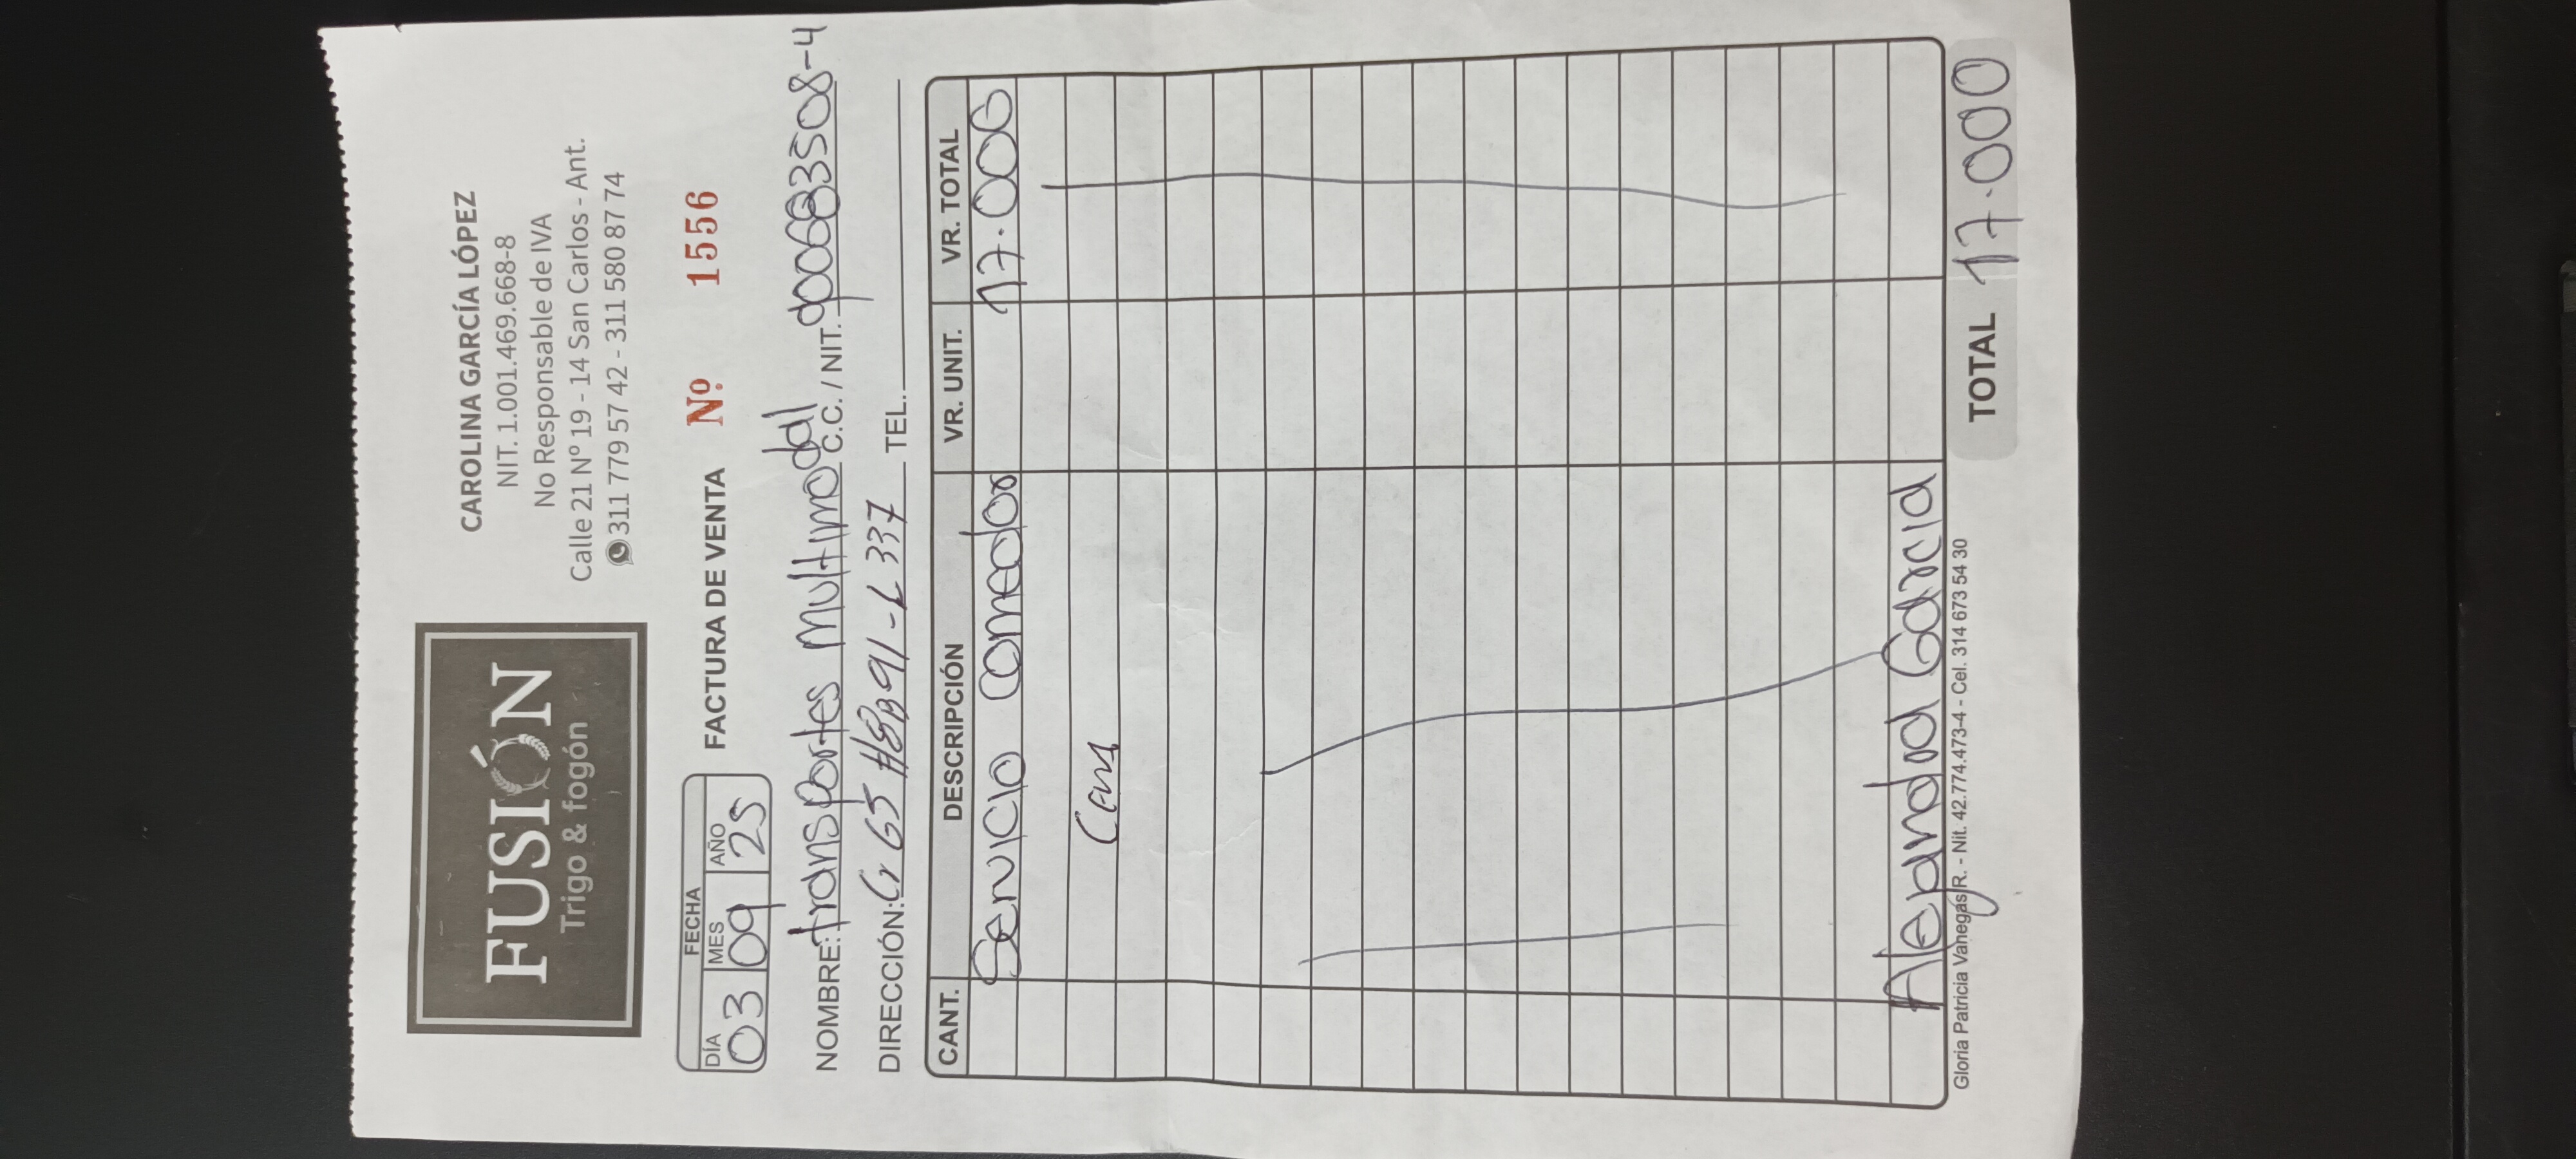 FUSIÓN
Trigo & fogón
CAROLINA GARCÍA LÓPEZ
NIT. 1.001.469.668-8
No Responsable de IVA
Calle 21 Nº 19 - 14 San Carlos - Ant.
311 779 57 42 - 311 580 87 74
FECHA
DÍA MES AÑO
03 09 25
FACTURA DE VENTA Nº 1556
NOMBRE: transportes multimodal C.C. / NIT. 900683508-4
DIRECCIÓN: Cr 65 #8B91-L 337 TEL.
CANT. DESCRIPCIÓN VR. UNIT. VR. TOTAL
Servicio comedor 17.000
Alejandra Garcia
TOTAL 17.000
Gloria Patricia Vanegas R. - Nit. 42.774.473-4 - Cel. 314 673 54 30